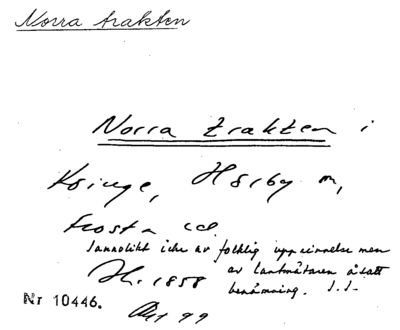 Norra trakten
Norra trakten i
Kringe, Hörby sn,
Frosta hd.
Sannolikt icke av folklig upprinnelse men
av lantmätaren åsatt
benämning. S.S.
H. 1858
Akt 99
Nr 10446.